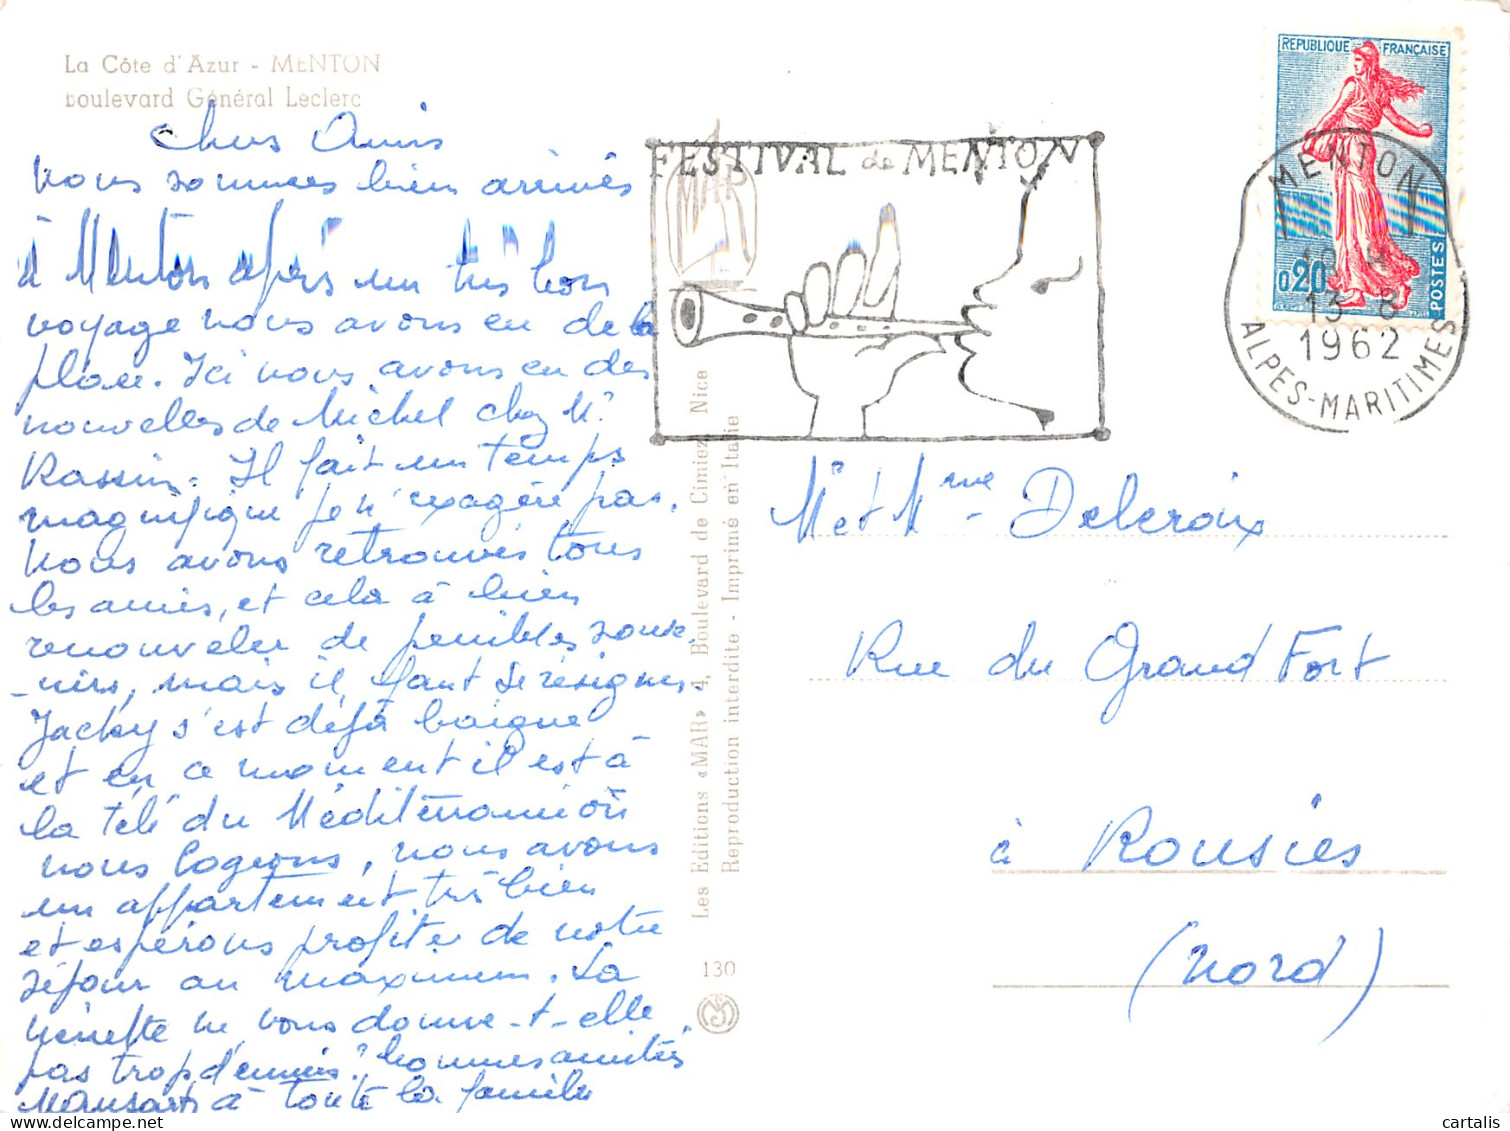 La Côte d'Azur - MENTON
Boulevard Général Leclerc
Chers Amis
Nous sommes bien arrivés
à Menton après un très bon
voyage nous avons eu de la
place. Ici nous avons eu des
nouvelles de Michel chez Mr
Rassin. Il fait un temps
magnifique je n'exagère pas.
Nous avons retrouvés tous
les amis, et cela à bien
renouveler de penibles souve
-nirs, mais il faut se résigner.
Jacky s'est déjà baigné
et en ce moment il est à
la télé du Méditerranée où
nous logeons, nous avons
un appartement très bien
et espérons profiter de notre
séjour au maximum. La
ne vous donne-t-elle
pas trop d'ennuis? bonnes amitiés
à toute la famille
FESTIVAL de MENTON
MAR
REPUBLIQUE FRANÇAISE
0,20
POSTES
MENTON
13-8
1962
ALPES-MARITIMES
Les Editions «MAR» 4, Boulevard de Cimiez Nice
Reproduction interdite - Imprimé en Italie
130
M et Mme - Delcroix
Rue du Grand Fort
à Rousies
(Nord)
cartalis